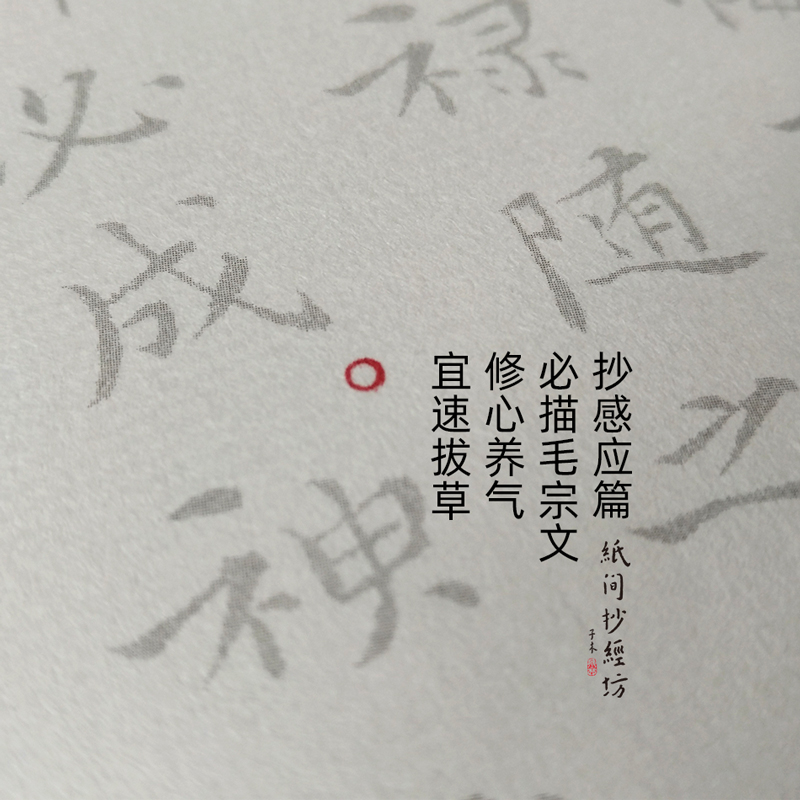 抄感应篇
必描毛宗文
修心养气
宜速拔草
紙间抄經坊
子木
禄
随
之
必
成
神